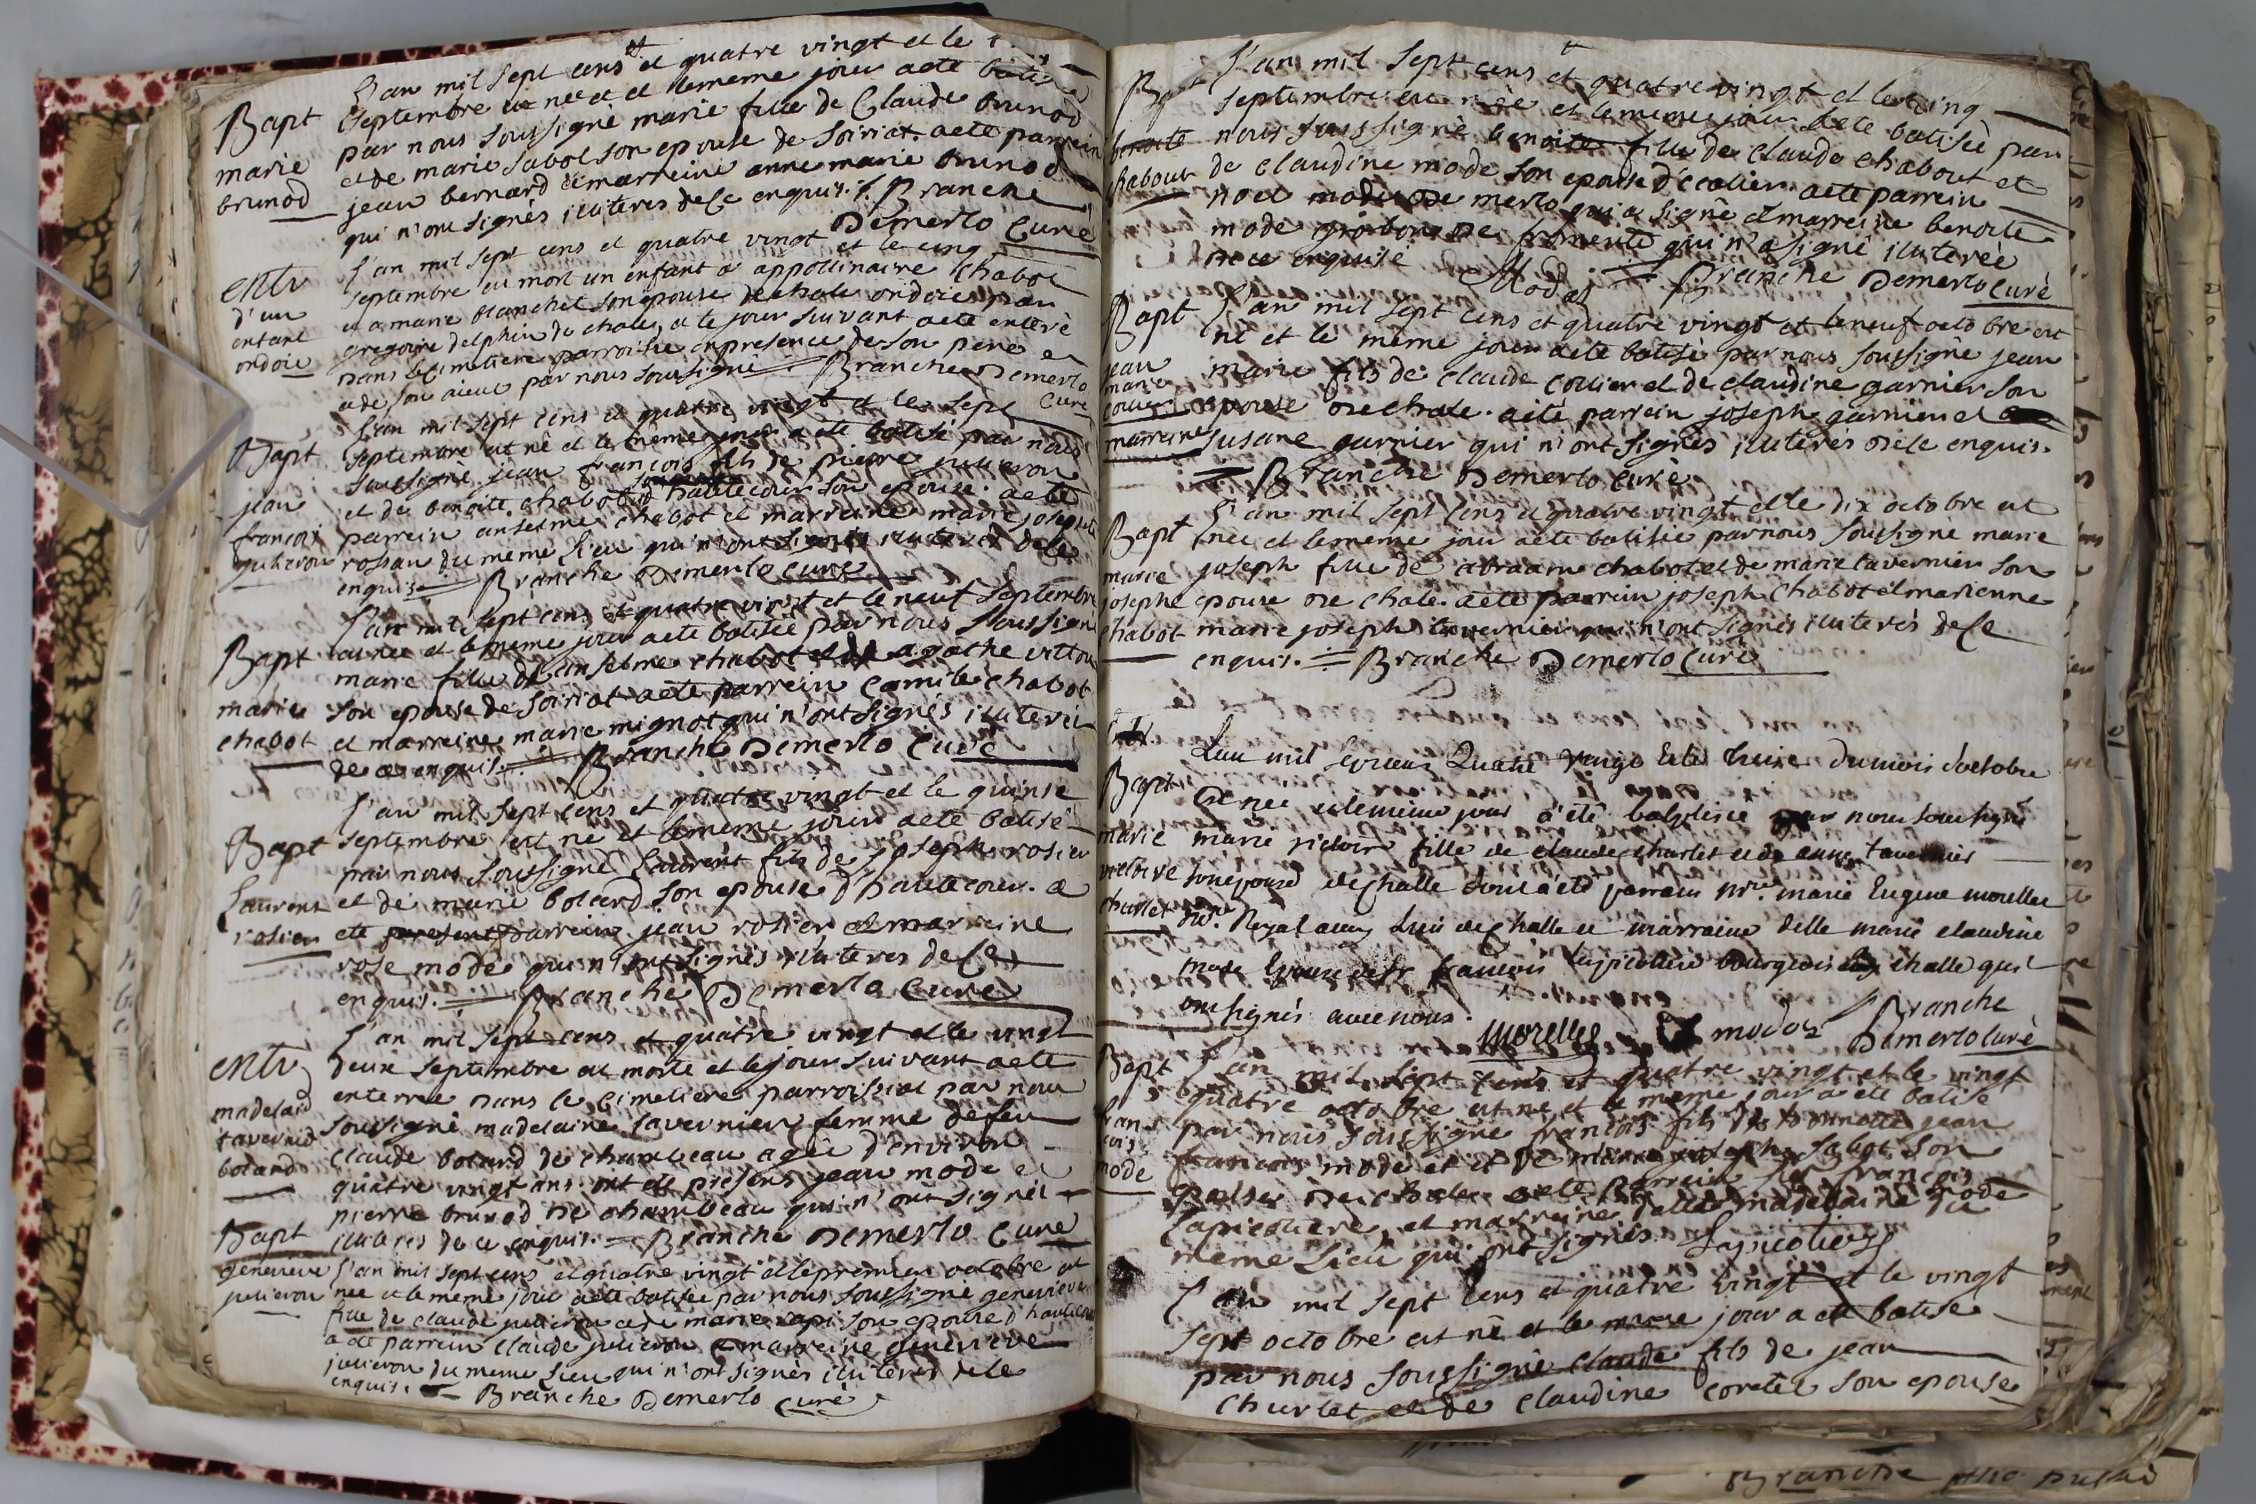 Bapt
marie
brunod
L'an mil sept cens et quatre vingt et le
septembre est née et le meme jour a eté batisée
par nous soussigné marie fille de Claude brunod
et de marie sabot son epouse de soiriat. a eté parrein
jean bernard et marreine anne marie brunod
qui n'ont signés illiteres de ce enquis. Branche
Demerlo Curé
entr
d'un
enfant
ondoié
L'an mil sept cens et quatre vingt et le cinq
septembre est mort un enfant a appollinaire Chabot
et a marie blanchet son epouse de chale ondoié par
gregoire delphin de chales, et le jour suivant a eté enteré
dans le cimetiere parroissial en presence de son pere et
et de son aieul par nous soussigné Branche Demerlo
Curé
Bapt
jean
françois
juhieron
L'an mil sept cens et quatre vingt et le sept
septembre est né et le meme jour a eté batisé par nous
soussigné jean françois fils de pierre
et de benoite chabot d'hautecour son epouse. a eté
parrein anselme chabot et marreine marie josephte
rossan du meme lieu qui n'ont signés illiteres de ce
enquis Branche Demerlo Curé
Bapt
marie
chabot
L'an mil sept cens et quatre vingt et le neuf septembre
est née et le meme jour a eté batisée par nous soussigné
marie fille de anselme chabot et de agathe vitton
son epouse de soiriat a eté parrein Camile chabot
et marreine marie mignot qui n'ont signés illiteres
de ce enquis. Branche Demerlo Curé
Bapt
Laurent
rosier
L'an mil sept cens et quatre vingt et le quinse
septembre est né et le meme jour a eté batisé
par nous soussigné Laurent fils de joseph rosier
et de marie bolard son epouse d'hautecour. a
eté present parrein jean rosier et marreine
rose mode qui n'ont signés illiteres de ce
enquis. Branche Demerlo Curé
entr
madelaine
tavernier
bolard
L'an mil sept cens et quatre vingt et le vingt
deux septembre est morte et le jour suivant a eté
enterrée dans le cimetiere parroissial par nous
soussigné madelaine tavernier femme de feu
claude bolard de chambeau agée d'environ
quatre vingt ans. ont eté présens jean mode et
pierre brunod de chambeau qui n'ont signés
illiteres de ce enquis. Branche Demerlo Curé
Bapt
genevieve
julieron
L'an mil sept cens et quatre vingt et le premier octobre est
née et le meme jour a eté batisée par nous soussigné genevieve
fille de claude julieron et de marie api son epouse d'hautecour
a eté parrein claude julieron et marreine genevieve
julieron du meme lieu qui n'ont signés illiteres de ce
enquis. Branche Demerlo curé
Bapt
benoite
chabout
L'an mil sept cens et quatre vingt et le cinq
septembre est née et le meme jour a eté batisée par
nous soussigné benoite fille de claude chabout et
de claudine mode son epouse d'ecolier a eté parrein
noel mode de merlo qui a signé et marreine benoite
mode de fromente qui n'a signé illiterée
de ce enquise Modas Branche Demerlo curé
Bapt
jean
marie
collier
L'an mil sept cens et quatre vingt et le neuf octobre est
né et le même jour a eté batisé par nous soussigné jean
marie fils de claude collier et de claudine garnier son
epouse de chale. a eté parrein joseph garnier et
marreine susane garnier qui n'ont signés illiteres de ce enquis.
Branche Demerlo Curé
Bapt
marie
josephe
chabot
L'an mil sept cens et quatre vingt et le dix octobre est
née et le meme jour a eté batisée par nous soussigné marie
joseph fille de abraam chabot et de marie tavernier son
epouse de chale. a eté parrein joseph chabot et marienne
marie joseph tavernier qui n'ont signés illiterés de ce
enquis. Branche Demerlo Curé
Bapt
marie
victoire
churlet
L'an mil sept cens Quatre vingt et le treise du mois d'octobre
Est née et le meme jour a été baptisée par nous soussigné
marie victoire fille de claude churlet et de anne tavernier
son epouse de challe dont a été parrain mre. marie Eugene morellet
Royal au lieu de challe et marraine delle marie claudine
mode Epouse de sr françois lapicotiere bourgeois de challe qui
ont signés avec nous. Morellet modas Branche
Demerlo Curé
Bapt
fran
cois
mode
L'an mil sept cens et quatre vingt et le vingt
quatre octobre est né et le meme jour a eté batisé
par nous soussigné françois fils de jean
françois mode et de marie josephe sabot son
epouse de chale a eté parrein sr françois
Lapicotiere et marreine delle madelaine mode du
meme lieu qui ont signés. Lapicotiere
L'an mil sept cens et quatre vingt et le vingt
sept octobre est né et le meme jour a eté batisé
par nous soussigné claude fils de jean
churlet et de claudine coretel son epouse
Branche